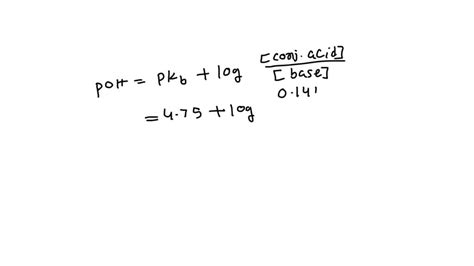 pOH = pKb + log [conj. acid] / [base]
0.141
= 4.75 + log